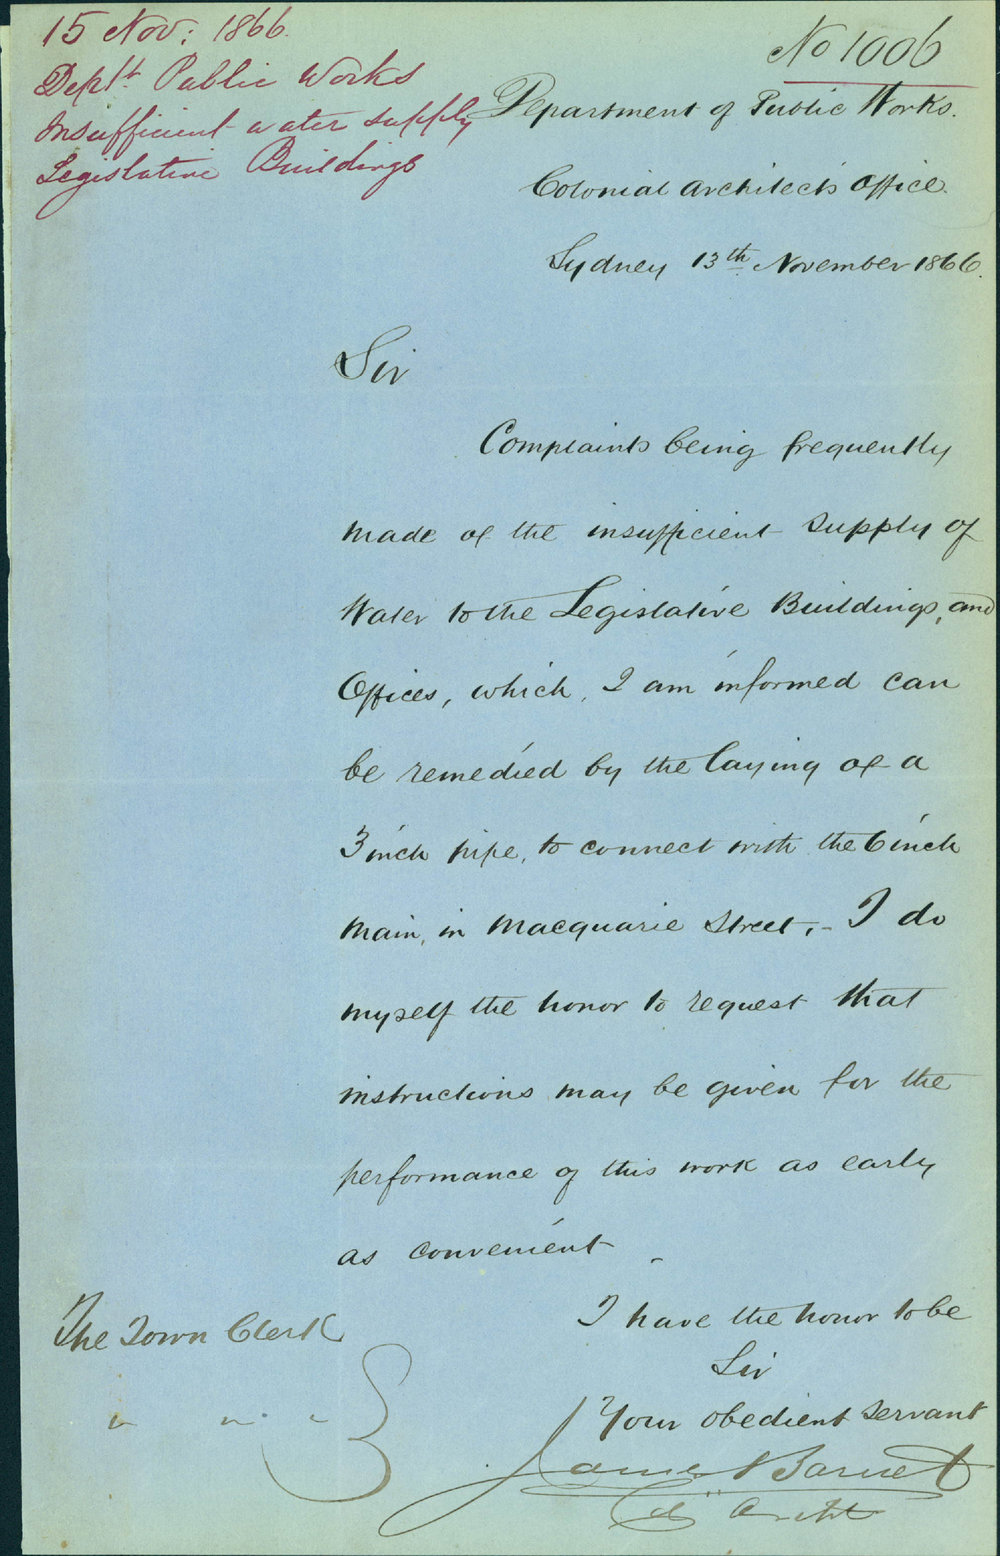 15 Nov: 1866.
Deptt. Public Works
Insufficient water supply
Legislative Buildings
No 1006
Department of Public Works.
Colonial Architects Office.
Sydney 13th November 1866.
Sir
Complaints being frequently
made of the insufficient supply of
Water to the Legislative Buildings, and
Offices, which, I am informed can
be remedied by the laying of a
3 inch pipe, to connect with the 6 inch
main, in Macquarie Street,- I do
myself the honor to request that
instructions may be given for the
performance of this work as early
as convenient -
I have the honor to be
Sir
Your obedient servant
James Barnet
Col. Archt
The Town Clerk